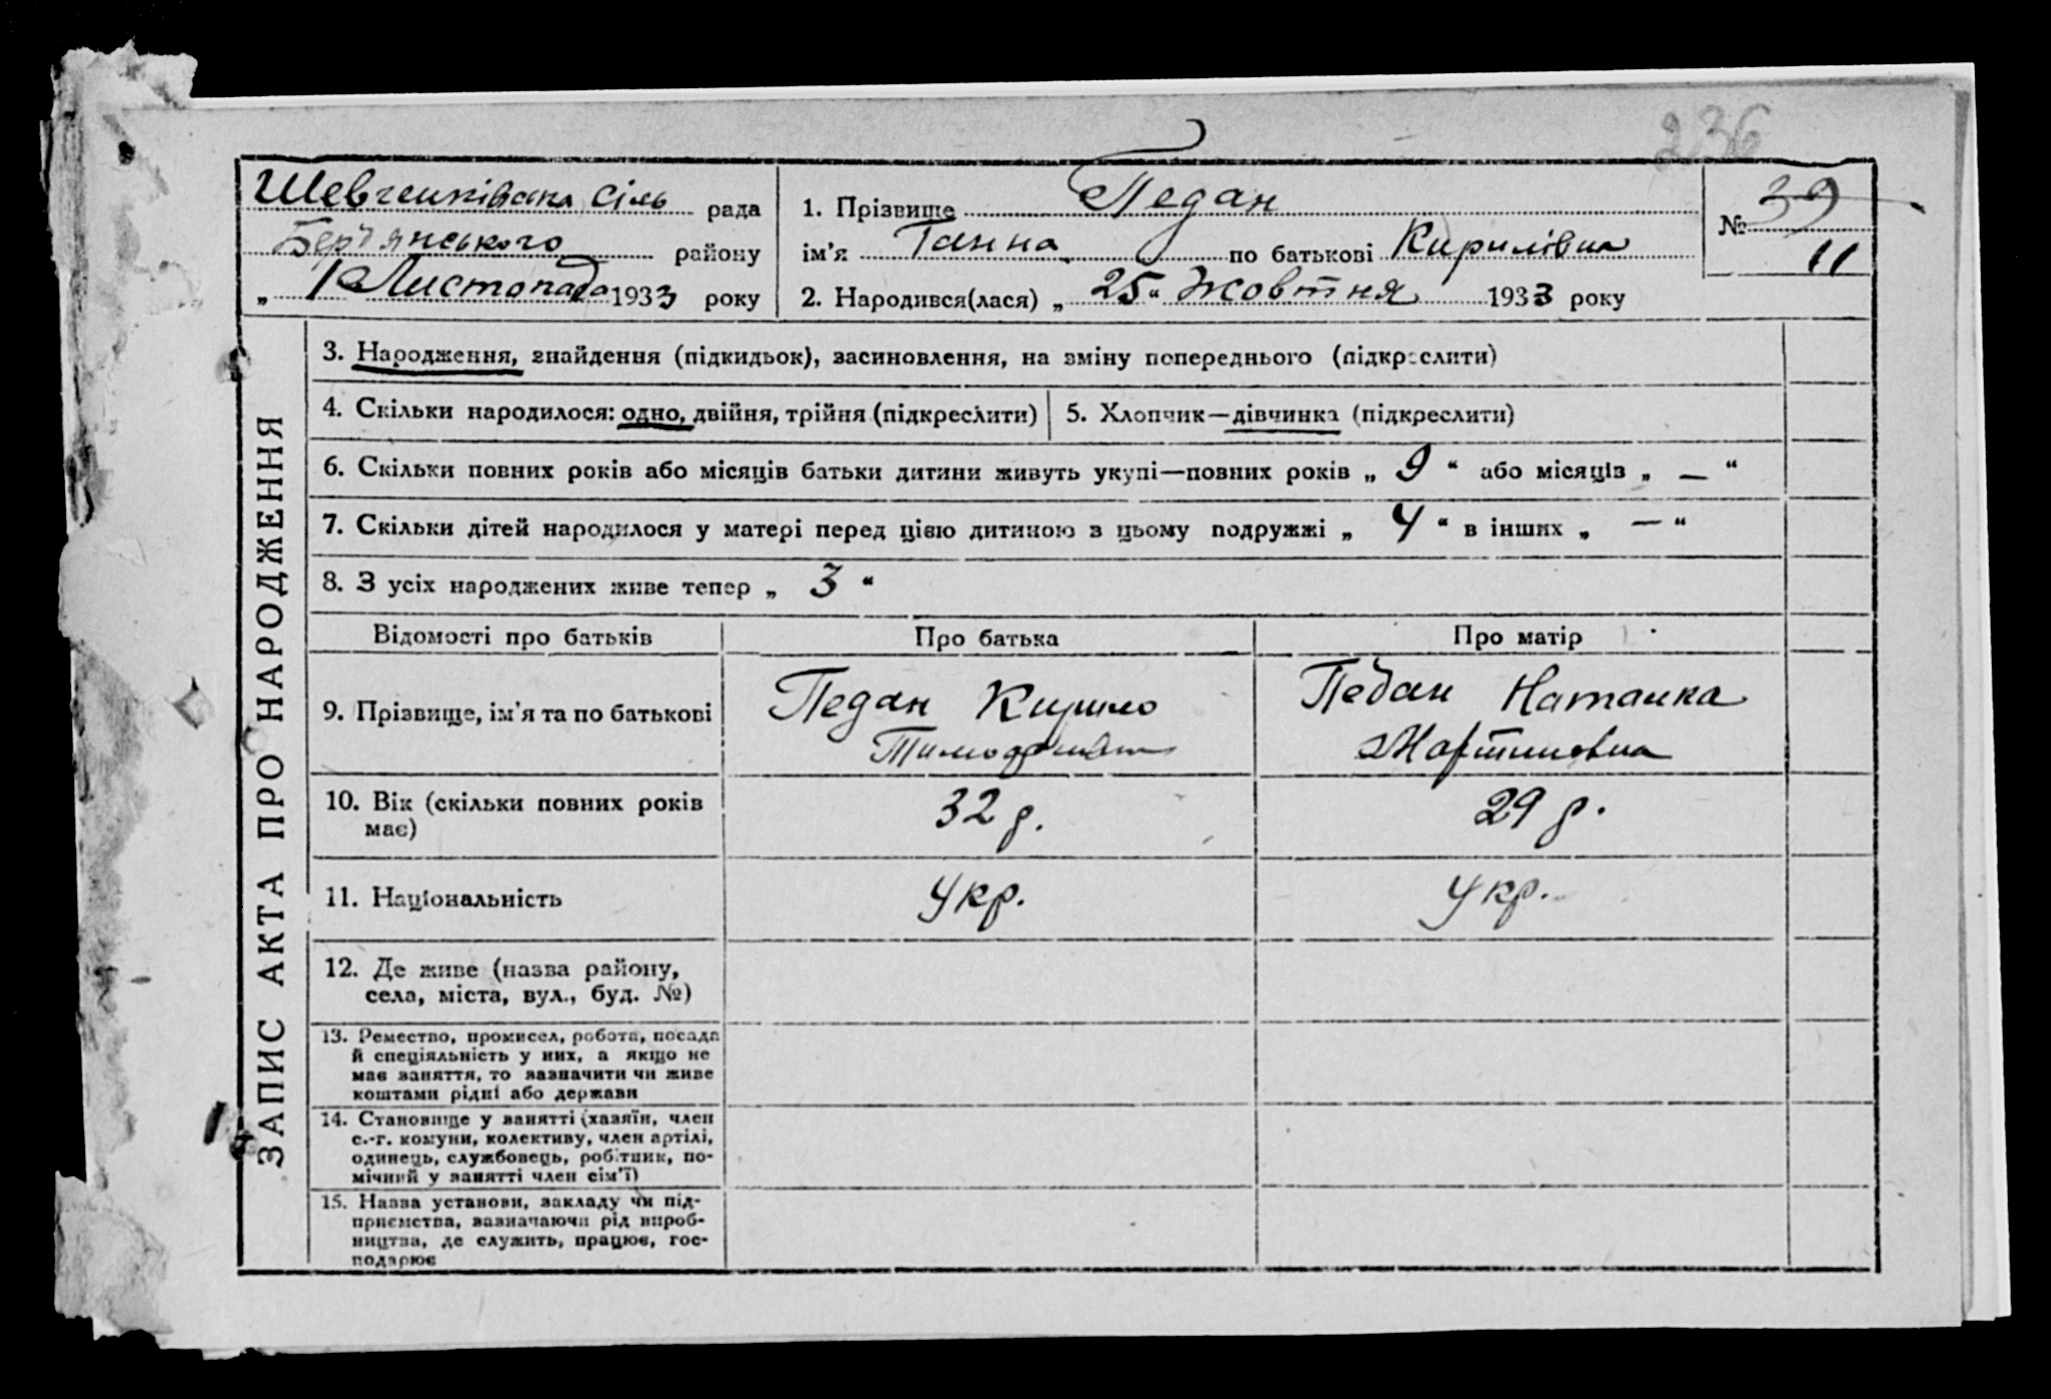 236
Шевченківська сіль рада
Бер'янського району
„ 1 Листопада 1933 року
1. Прізвище Педан
ім'я Ганна по батькові Кирилівна
2. Народився(лася) „ 25 “ Жовтня 1933 року
№ 39
11
ЗАПИС АКТА ПРО НАРОДЖЕННЯ
3. Народження, знайдення (підкидьок), засиновлення, на зміну попереднього (підкреслити)
4. Скільки народилося: одно, двійня, трійня (підкреслити)
5. Хлопчик—дівчинка (підкреслити)
6. Скільки повних років або місяців батьки дитини живуть укупі—повних років „ 9 “ або місяців „ — “
7. Скільки дітей народилося у матері перед цією дитиною з цьому подружжі „ 4 “ в інших „ — “
8. З усіх народжених живе тепер „ 3 “
Відомості про батьків
Про батька
Про матір
9. Прізвище, ім'я та по батькові
Педан Кирило
Тимофійович
Педан Наталка
Мартиновна
10. Вік (скільки повних років
має)
32 р.
29 р.
11. Національність
Укр.
Укр.
12. Де живе (назва району,
села, міста, вул., буд. №)
13. Ремество, промисел, робота, посада
й спеціяльність у них, а якщо не
має заняття, то зазначити чи живе
коштами рідні або держави
14. Становище у занятті (хазяїн, член
с.-г. комуни, колективу, член артілі,
одинець, службовець, робітник, по-
мічний у занятті член сім'ї)
15. Назва установи, закладу чи під-
приємства, зазначаючи рід вироб-
ництва, де служить, працює, гос-
подарює